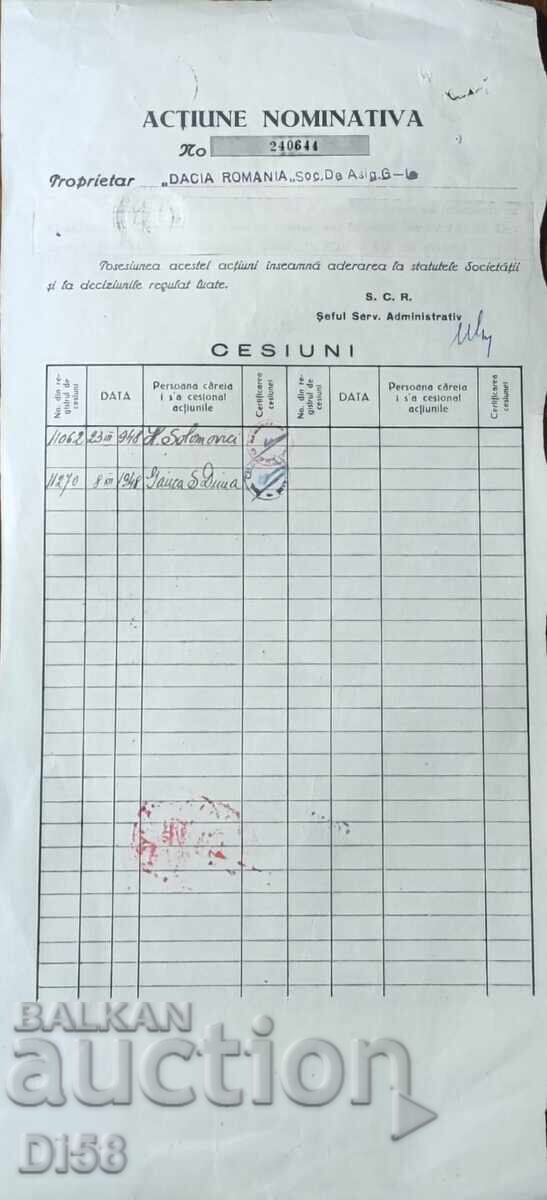 ACȚIUNE NOMINATIVA
No 240644
Proprietar „DACIA ROMANIA„Soc.De Asig.G-le
Posesiunea acestei acțiuni înseamnă aderarea la statutele Societății
și la deciziunile regulat luate.
S. C. R.
Șeful Serv. Administrativ
CESIUNI
No. din registrul de cesiuni DATA Persoana căreia i s'a cesionat acțiunile Certificarea cesiunei No. din registrul de cesiuni DATA Persoana căreia i s'a cesionat acțiunile Certificarea cesiunei
11062 23 III 948 H. Solomovici
11270 8 XII 1948
BALKAN
auction
D158